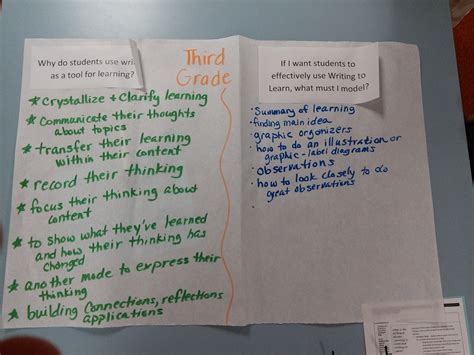 Why do students use wri
as a tool for learning?
Third
Grade
★ Crystallize + Clarify learning
★ Communicate their thoughts
about topics
★ transfer their learning
within their content
★ record their thinking
★ focus their thinking about
content
★ to show what they've learned
and how their thinking has
changed
★ another mode to express their
thinking
★ building Connections, reflections
applications
If I want students to
effectively use Writing to
Learn, what must I model?
• Summary of learning
• finding main idea
• graphic organizers
• how to do an illustration or
graphic - label diagrams
• observations
• how to look closely to do
great observations